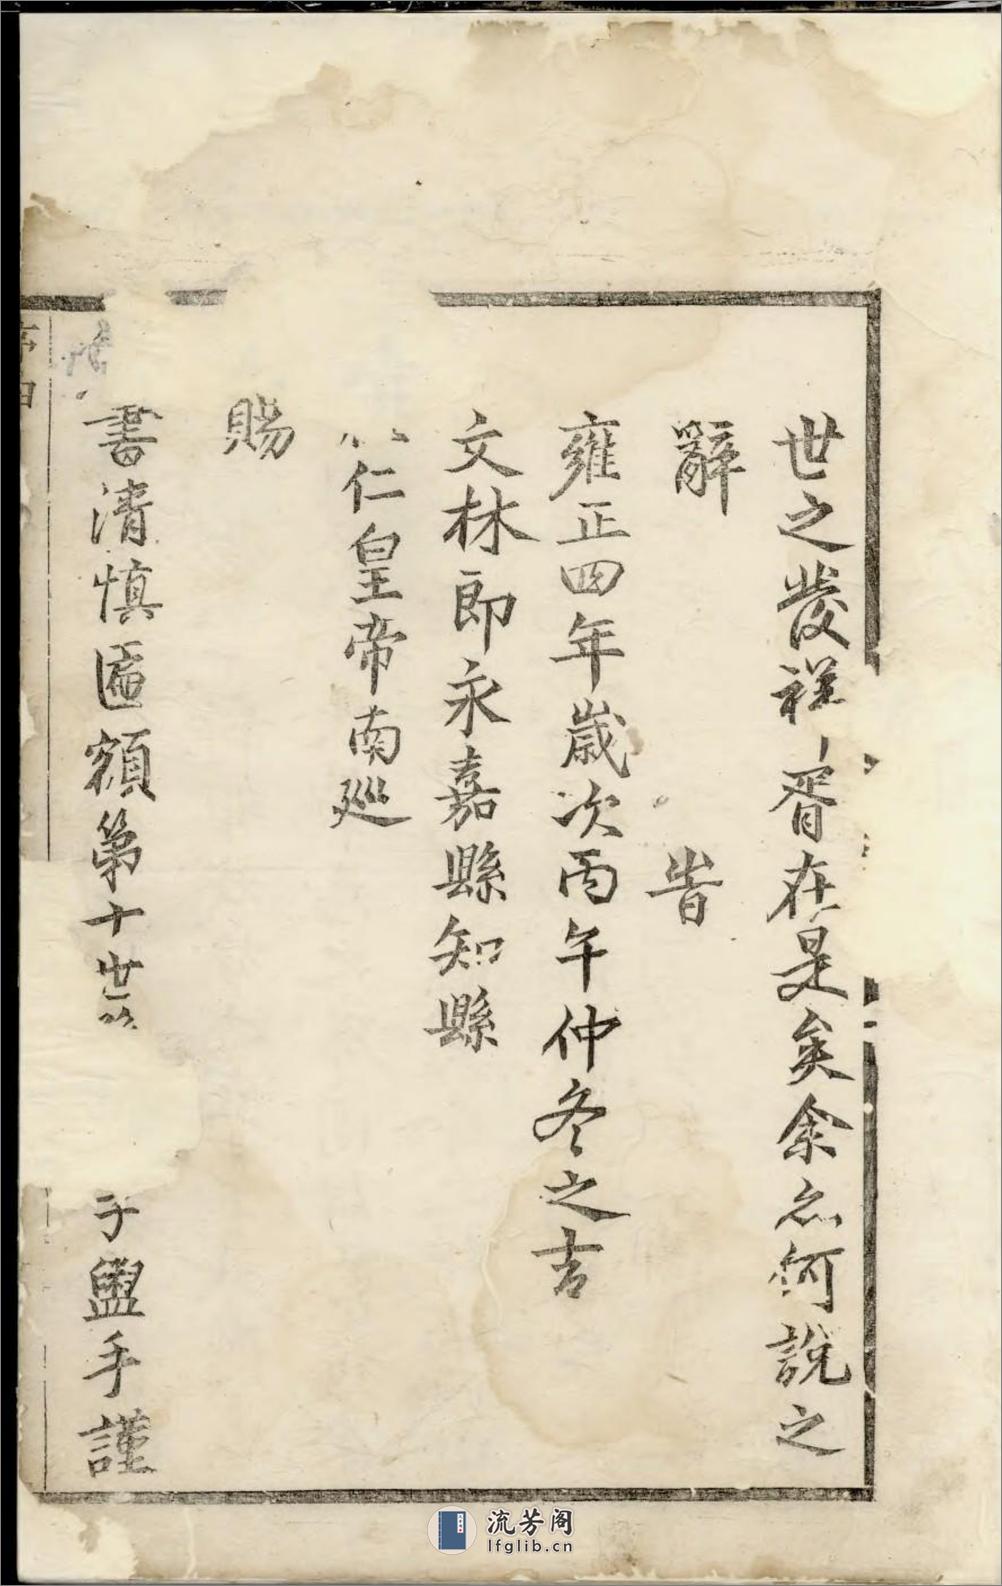 世之發祥胥在是矣余亦何說之
辭 旹
雍正四年歲次丙午仲冬之吉
文林郎永嘉縣知縣
仁皇帝南廵
賜
書清慎匾額第十世
子盥手謹
流芳阁
lfglib.cn